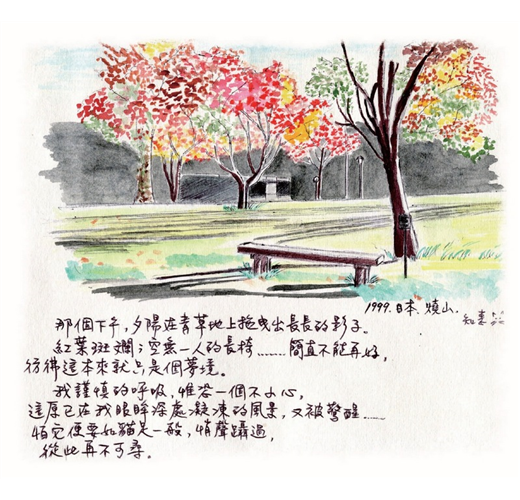 1999. 日本. 燒山.
那個下午，夕陽在青草地上拖曳出長長的影子。
紅葉斑斕；空無一人的長椅……簡直不能再好，
彷彿這本來就是個夢境。
我謹慎的呼吸，惟恐一個不小心，
這原已在我眼眸深處凝凍的風景，又被驚醒……
怕它便要如貓足一般，悄聲躡過，
從此再不可尋。